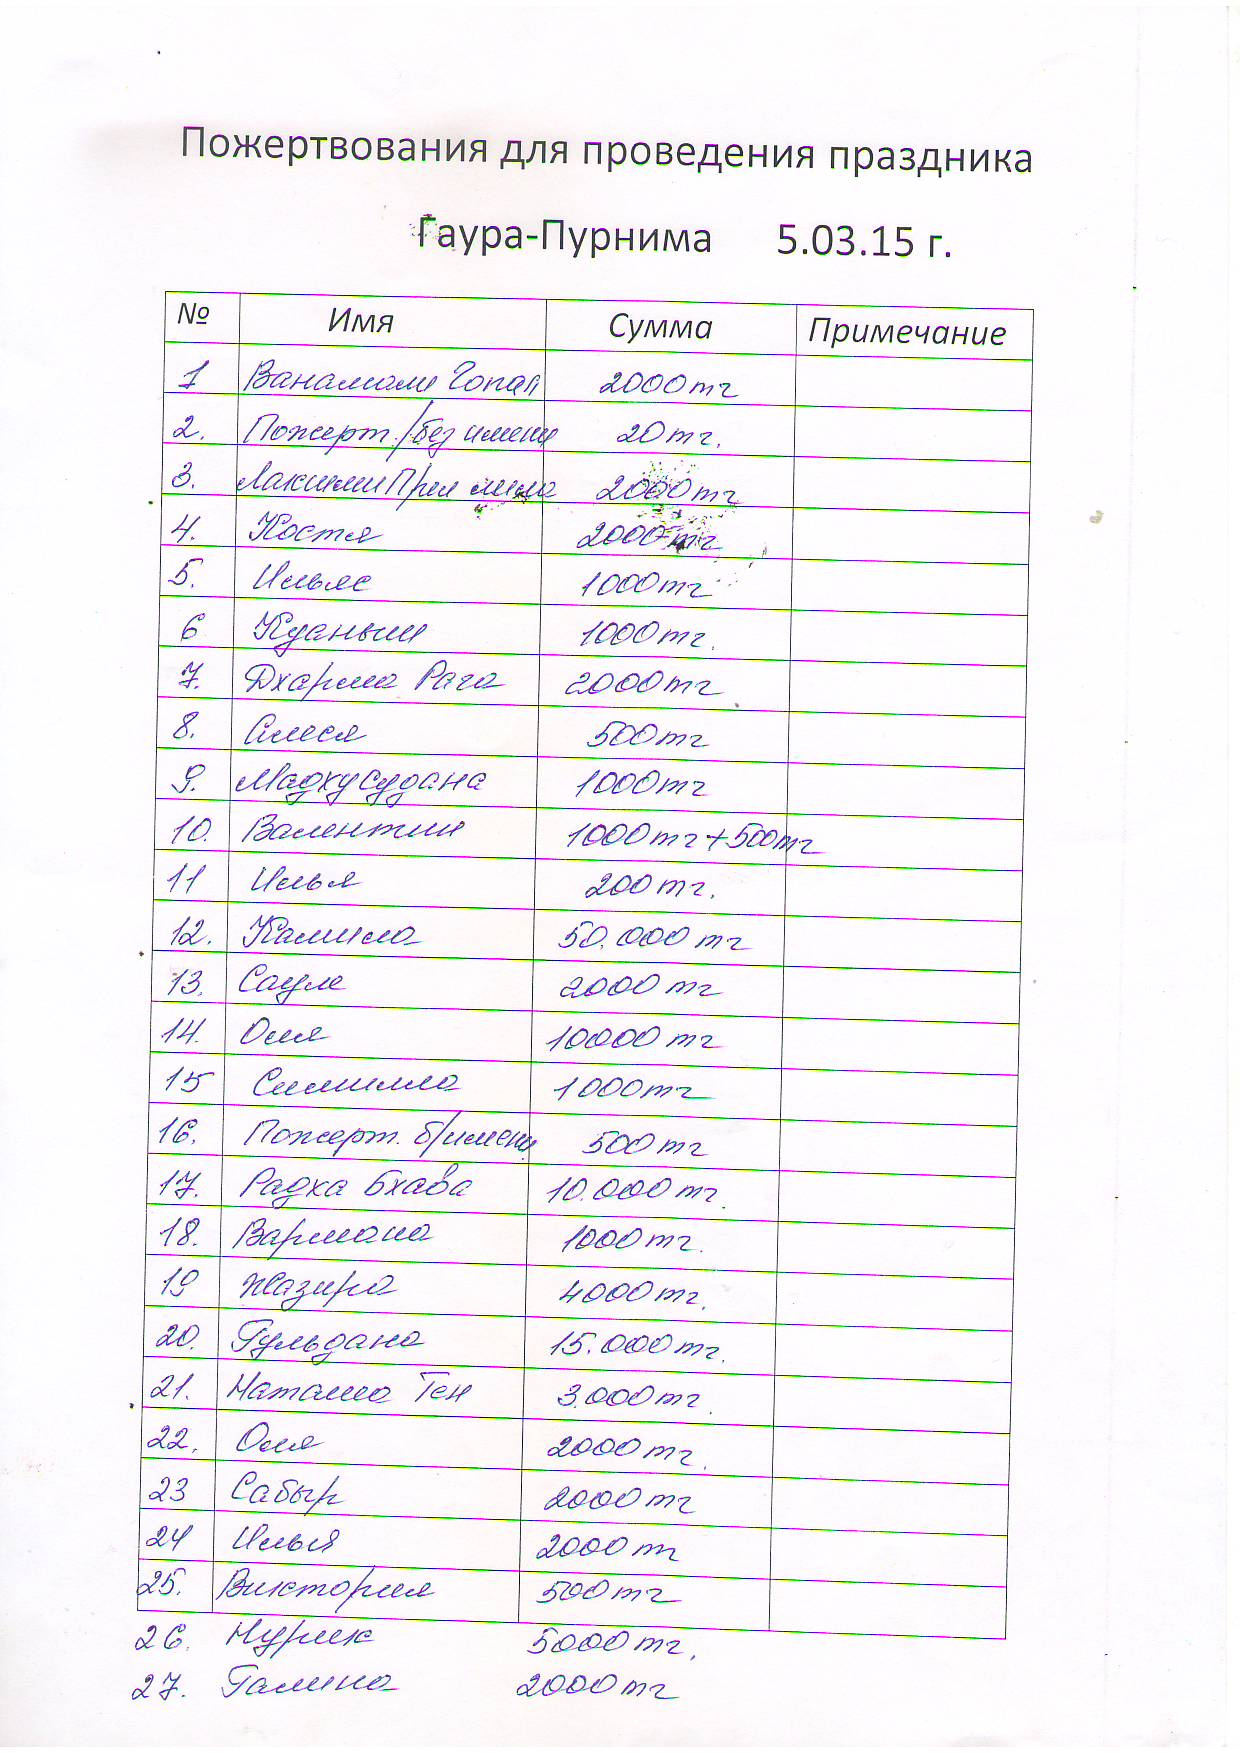 Пожертвования для проведения праздника
Гаура-Пурнима 5.03.15 г.
№ Имя Сумма Примечание
1 Ванамали Гопал 2000тг
2. Пожерт./без имени 20тг.
3. 2000тг
4. Костя 2000тг
5. Ильяс 1000тг
6 Куаныш 1000тг.
7. Дхарма Рага 2000тг
8. Олеся 500тг
9. Мадхусудана 1000тг
10. Валентин 1000тг+500тг
11 Илья 200тг.
12. Камила 50.000 тг
13. Сауле 2000 тг
14. Оля 10000 тг
15 1000тг
16. Пожерт. б/имени 500тг
17. Радха Бхава 10.000тг.
18. Вармана 1000тг.
19 Назира 4000тг.
20. Гульдана 15.000тг.
21. Наташа Тен 3.000тг.
22. Оля 2000тг.
23 Сабыр 2000тг
24 Илья 2000тг
25. Виктория 500тг
26. Нурлик 5000тг.
27. Галина 2000тг